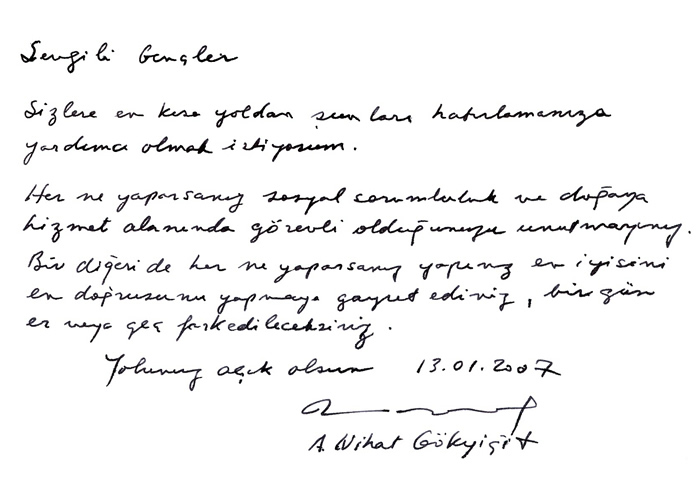 Sevgili Gençler
Sizlere en kısa yoldan şunları hatırlamanıza
yardımcı olmak istiyorum.
Her ne yaparsanız sosyal sorumluluk ve doğaya
hizmet alanında görevli olduğunuzu unutmayınız.
Bir diğeri de her ne yaparsanız yapınız en iyisini
en doğrusunu yapmaya gayret ediniz, bir gün
er veya geç farkedileceksiniz.
Yolunuz açık olsun 13.01.2007
A. Nihat Gökyiğit